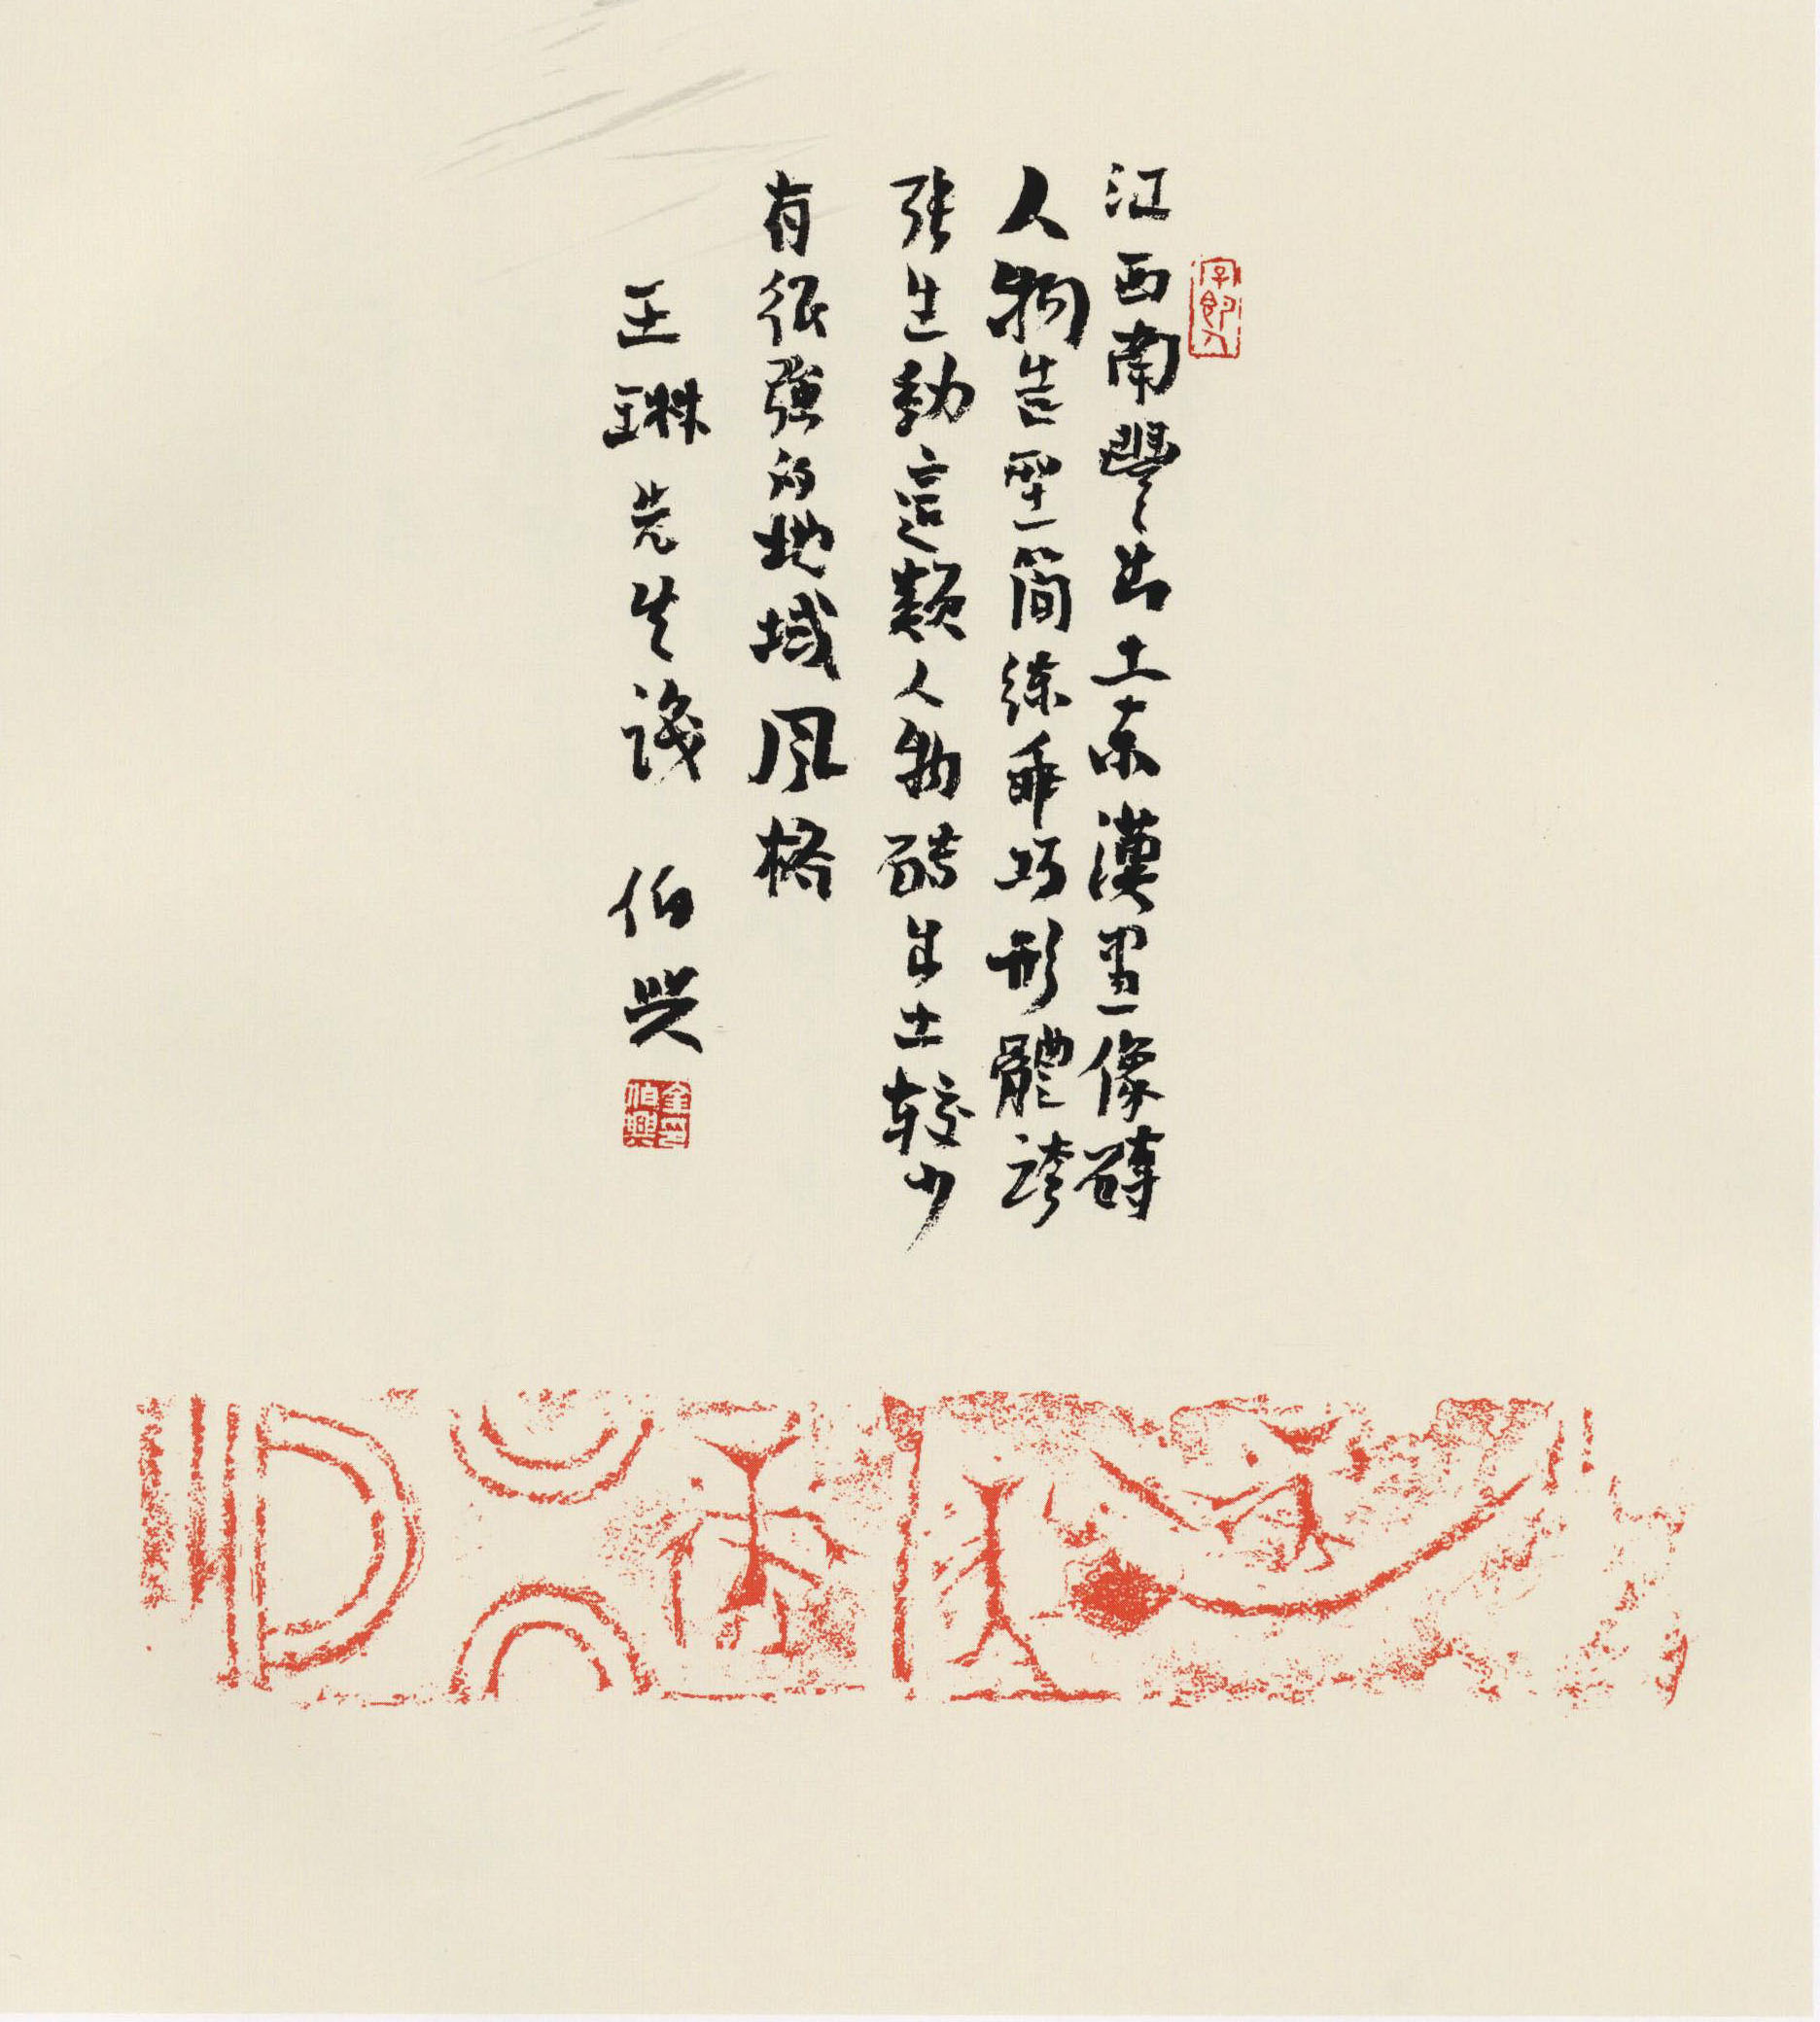 江西南豐出土東漢畫像磚
人物造型簡練乖巧形體誇
張生動這類人物磚出土較少
有很強的地域風格
王琳先生識 伯興